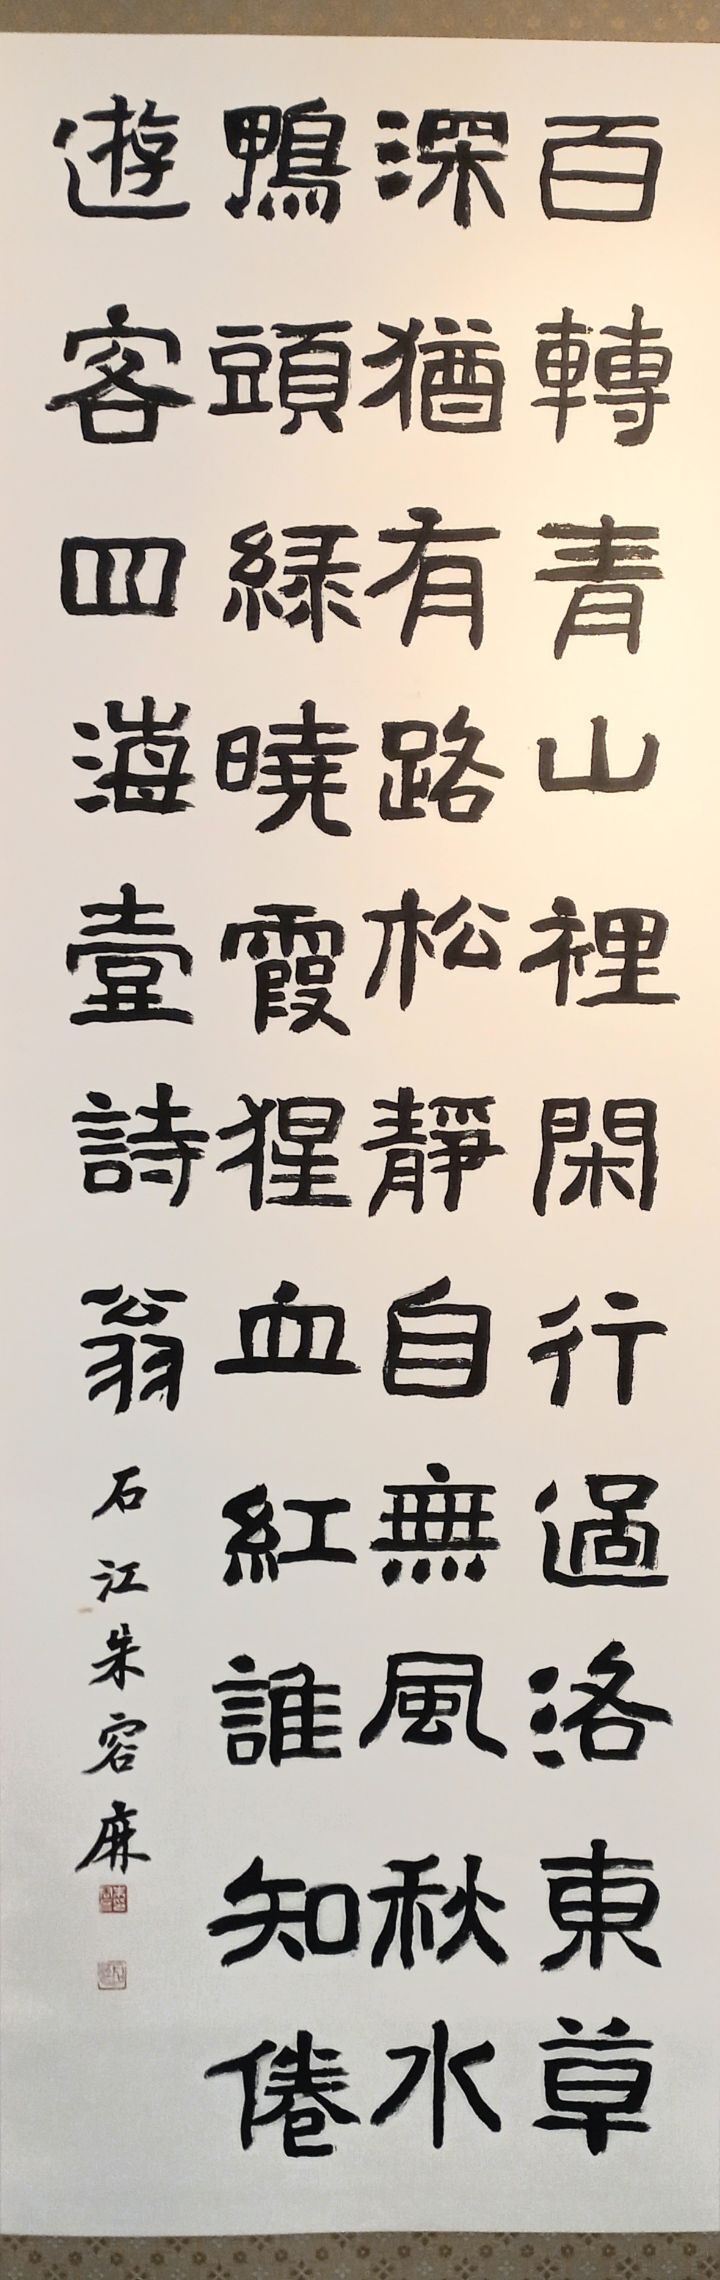 百轉青山裡閑行過洛東草
深猶有路松靜自無風秋水
鴨頭綠曉霞猩血紅誰知倦
遊客四海壹詩翁
石江朱容麻